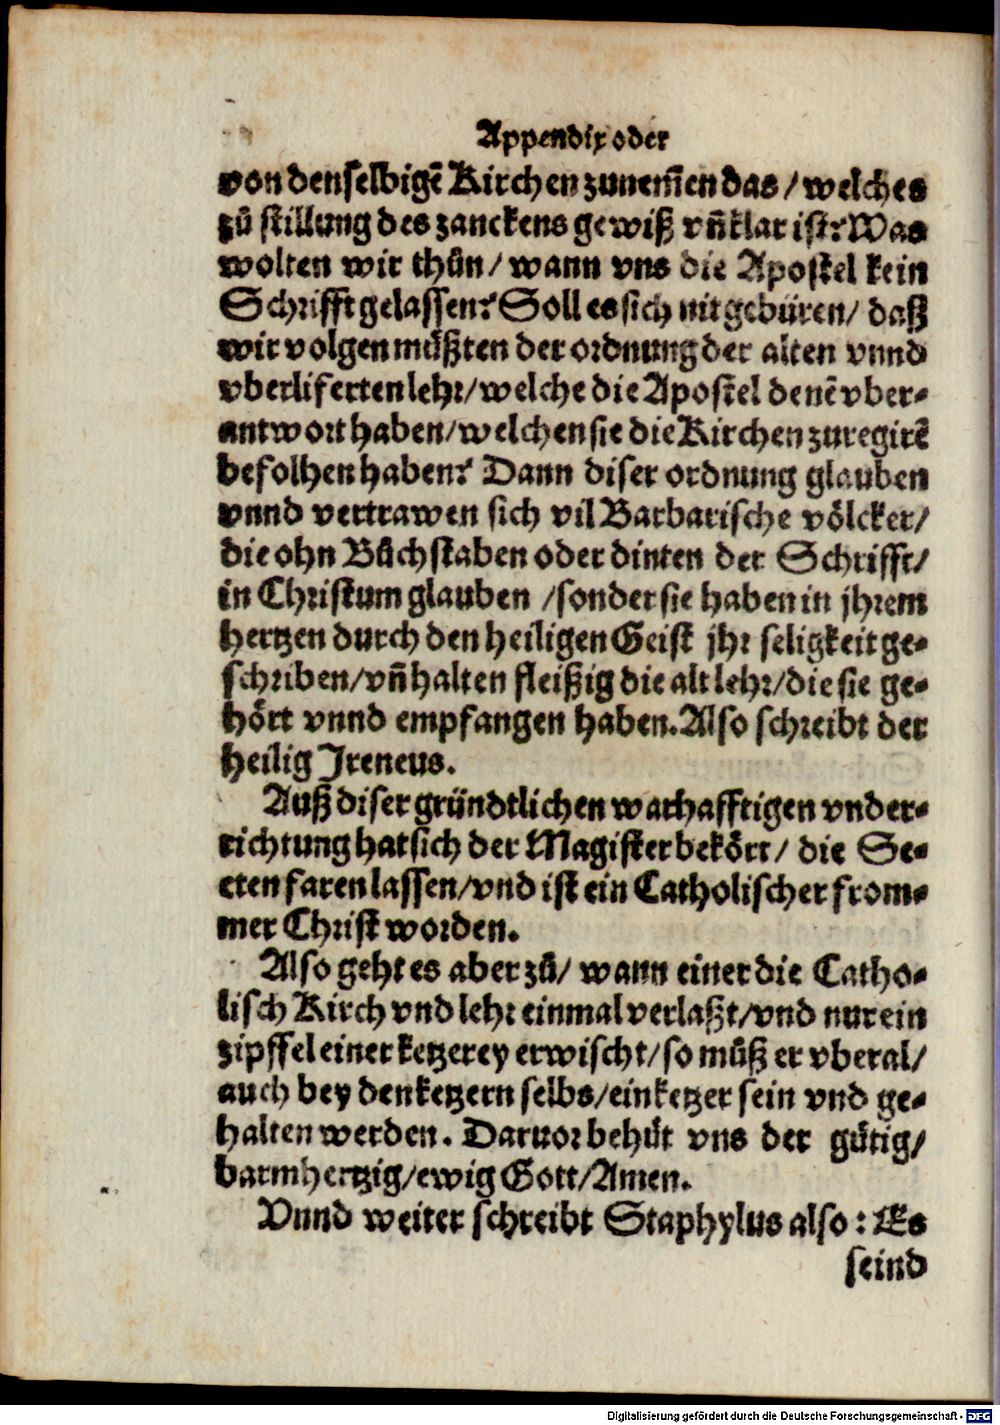 Appendix oder
von denselbigẽ Kirchen zunem̃en das / welches
zů stillung des zanckens gewiß vñ klar ist? Was
wolten wir thůn / wann vns die Apostel kein
Schrifft gelassen? Soll es sich nit gebüren / daß
wir volgen müßten der ordnung der alten vnnd
vberliferten lehr / welche die Apostel denẽ vber-
antwort haben / welchen sie die Kirchen zuregirẽ
befolhen haben? Dann diser ordnung glauben
vnnd vertrawen sich vil Barbarische völcker /
die ohn Bůchstaben oder dinten der Schrifft /
in Christum glauben / sonder sie haben in jhrem
hertzen durch den heiligen Geist jhr seligkeit ge-
schriben / vñ halten fleißig die alt lehr / die sie ge-
hört vnnd empfangen haben. Also schreibt der
heilig Jreneus.
Auß diser gründtlichen warhafftigen vnder-
richtung hat sich der Magister bekört / die Se-
cten faren lassen / vnd ist ein Catholischer from-
mer Christ worden.
Also geht es aber zů / wann einer die Catho-
lisch Kirch vnd lehr einmal verlaßt / vnd nur ein
zipffel einer ketzerey erwischt / so můß er vberal /
auch bey den ketzern selbs / ein ketzer sein vnd ge-
halten werden. Daruor behüt vns der gütig /
barmhertzig / ewig Gott / Amen.
Vnnd weiter schreibt Staphylus also : Es
seind
Digitalisierung gefördert durch die Deutsche Forschungsgemeinschaft - DFG